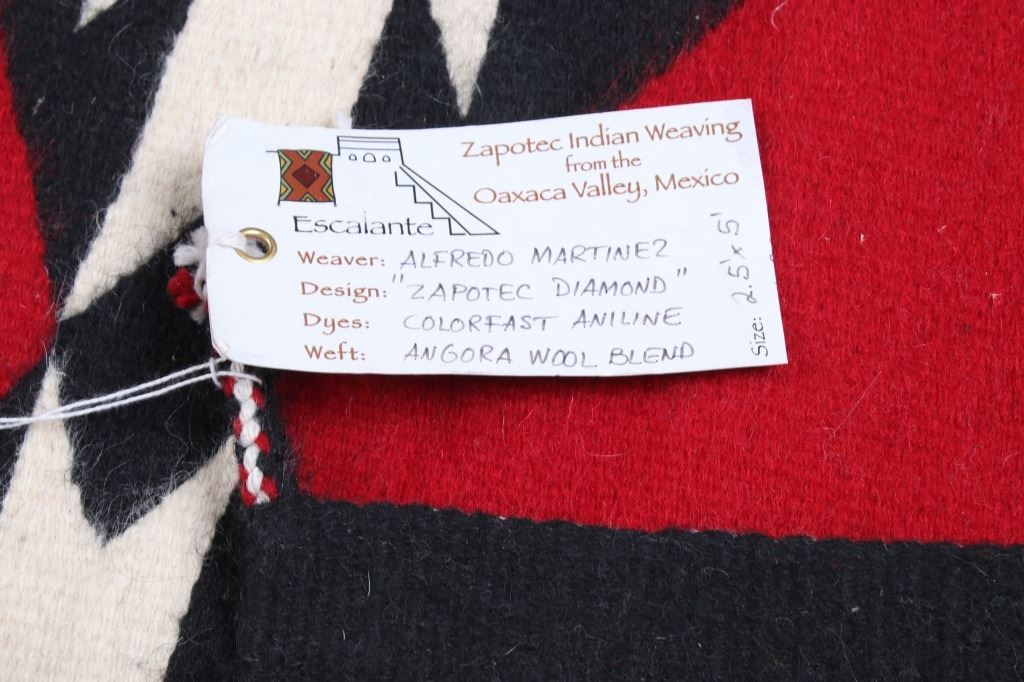 Zapotec Indian Weaving
from the
Oaxaca Valley, Mexico
Escalante
Weaver: ALFREDO MARTINEZ
Design: "ZAPOTEC DIAMOND"
Dyes: COLORFAST ANILINE
Weft: ANGORA WOOL BLEND
Size: 2.5' x 5'